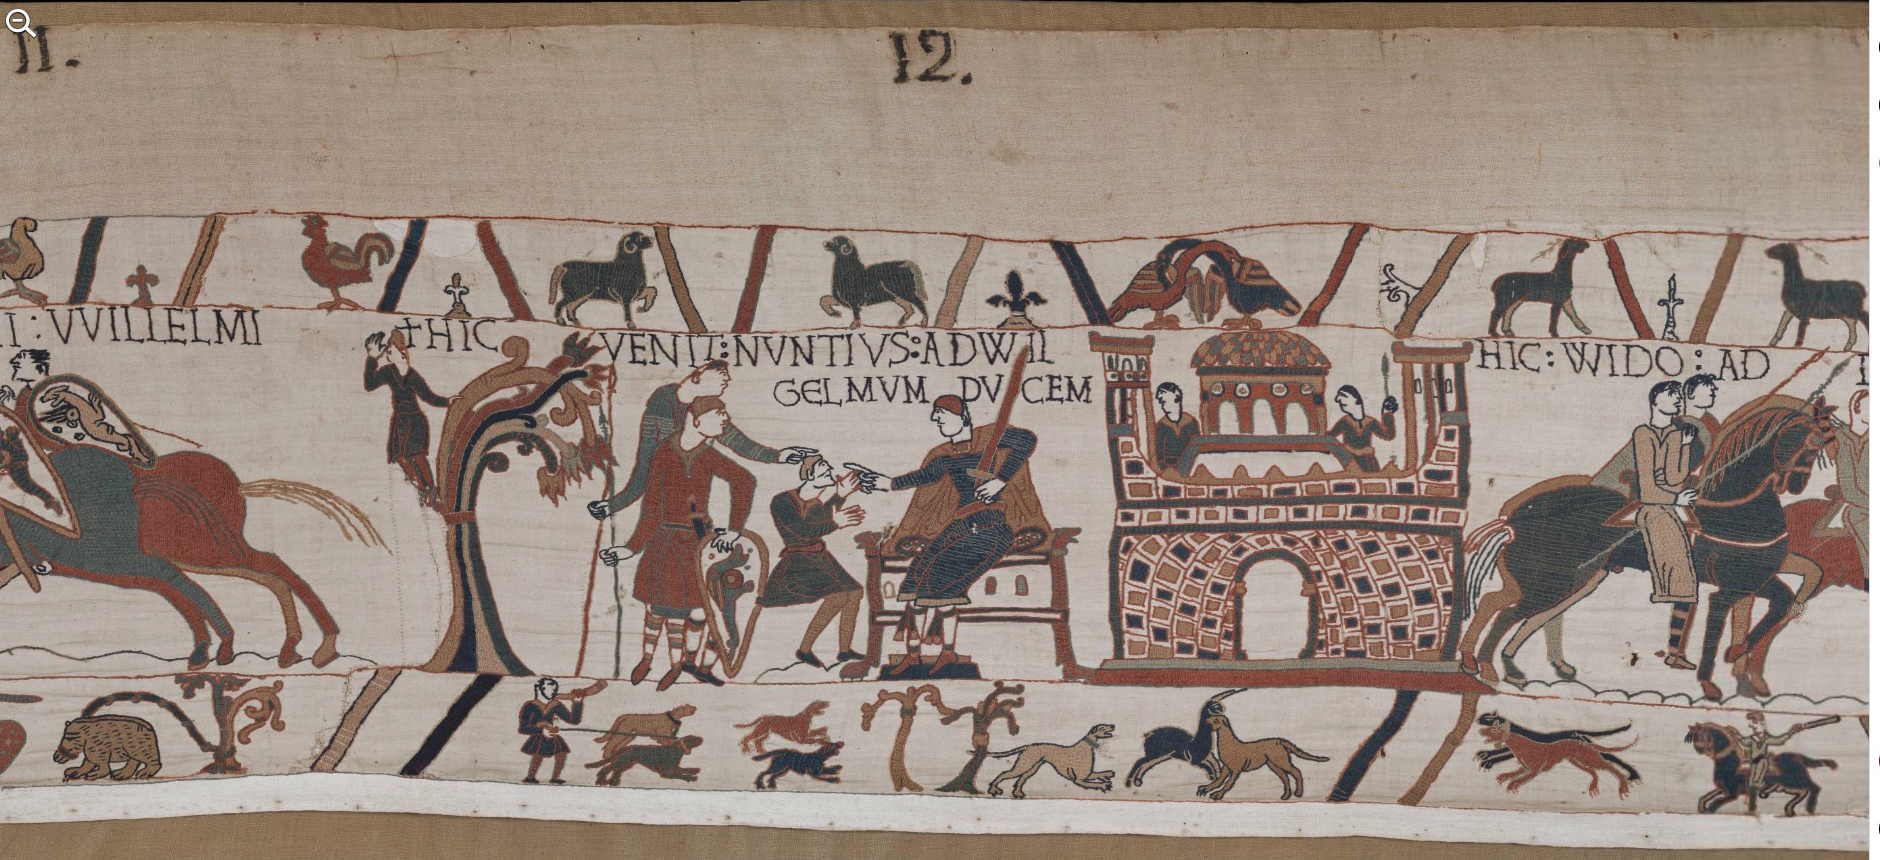 11.
12.
I : VVILLELMI
†HIC
VENIT : NVNTIVS : AD WIL
GELMVM DVCEM
HIC : WIDO : AD